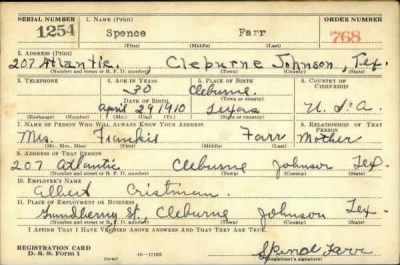 SERIAL NUMBER 1. NAME (Print) ORDER NUMBER
1254 Spence Farr 768
(First) (Middle) (Last)
2. ADDRESS (Print)
207 Atlantic. Cleburne Johnson, Tex.
(Number and street or R. F. D. number) (Town) (County) (State)
3. TELEPHONE 4. AGE IN YEARS 5. PLACE OF BIRTH 6. COUNTRY OF CITIZENSHIP
30 Cleburne.
DATE OF BIRTH (Town or county)
April 29 1910 Texas U. S. A.
(Exchange) (Number) (Mo.) (Day) (Yr.) (State or country)
7. NAME OF PERSON WHO WILL ALWAYS KNOW YOUR ADDRESS 8. RELATIONSHIP OF THAT PERSON
Mrs. Farr Mother
(Mr., Mrs., Miss) (First) (Middle) (Last)
9. ADDRESS OF THAT PERSON
207 Atlantic Cleburne Johnson Tex
(Number and street or R. F. D. number) (Town) (County) (State)
10. EMPLOYER'S NAME
Albert
11. PLACE OF EMPLOYMENT OR BUSINESS
St. Cleburne Johnson Tex.
(Number and street or R. F. D. number) (Town) (County) (State)
I AFFIRM THAT I HAVE VERIFIED ABOVE ANSWERS AND THAT THEY ARE TRUE.
REGISTRATION CARD
D. S. S. Form 1 (over) Farr
(Registrant's signature)